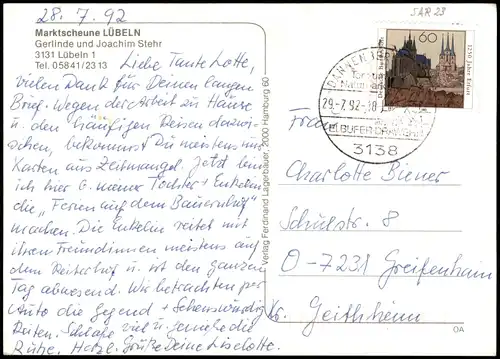 28.7.92
Marktscheune LÜBELN
Gerlinde und Joachim Stehr
3131 Lübeln 1
Tel. 05841/2313
Liebe Tante Lotte,
vielen Dank für Deinen langen
Brief. Wegen der Arbeit zu Hause
u. den häufigen Reisen dazwi-
schen, bekommst Du meistens nur
Karten aus Zeitmangel. Jetzt bin
ich hier b. meiner Tochter + Enkelin
die „Ferien auf dem Bauernhof"
machen. Die Enkelin reitet mit
ihren Freundinnen meistens auf
dem Reiterhof u. ist den ganzen
Tag abwesend. Wir betrachten per
Auto die Gegend + Sehenswürdig-
keiten. Schlafe viel u. genieße die
Ruhe. Herzl. Grüße Deine Liselotte.
Verlag Ferdinand Lagerbauer, 2000 Hamburg 60
SAR 23
60
1250 Jahre Erfurt
DANNENBERG
29.-7.92-18
ELBUFER-DRAWEHN
3138
Frau
Charlotte Biener
Schulstr. 8
O-7231 Greifenhain
Kr. Geithheim
OA